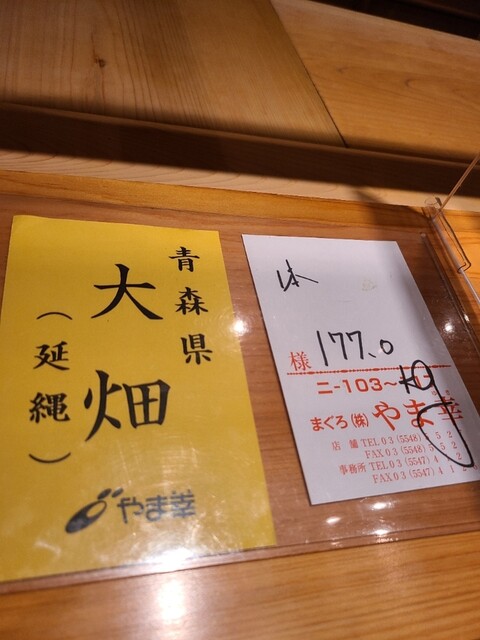 青森県
大畑
(延縄)
やま幸
本
177.0
様
ニ-103~
まぐろ(株)やま幸
店舗 TEL03(5548)
FAX03(5548)
事務所 TEL03(5547)
FAX03(5547)